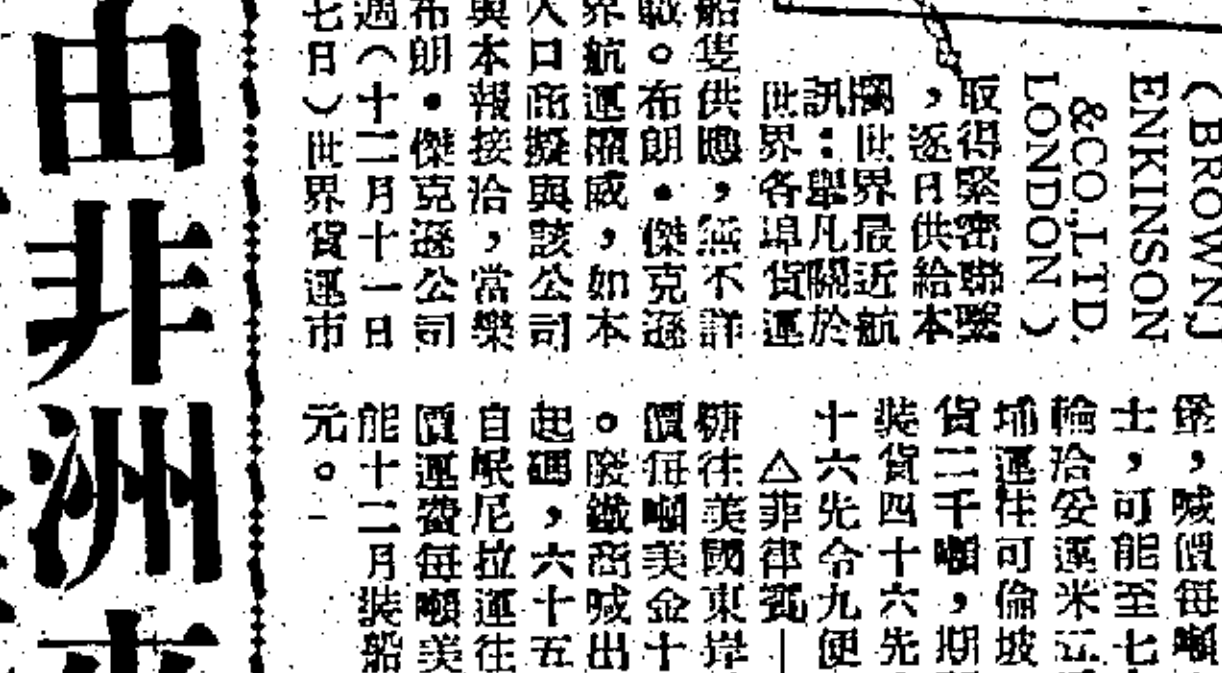 (BROWN J
ENKINSON
&CO.,LTD.
LONDON)
取得緊密聯繫
，逐日供給本
欄世界最近航
訊：舉凡關於
世界各埠貨運
船隻供應，無不詳
載。布朗•傑克遜
界航運權威，如本
入口商擬與該公司
與本報接洽，當樂
布朗•傑克遜公司
週（十二月十一日
七日）世界貨運市
堡，喊價每噸
士，可能至七
輪洽妥運米五
埔運往可倫坡
貨二千噸，期
裝貨四十六先
十六先令九便
△菲律賓—
糖往美國東岸
價每噸美金十
。廢鐵商喊出
起碼，六十五
自岷尼拉運往
價運費每噸美
能十二月裝船
元。
由非洲